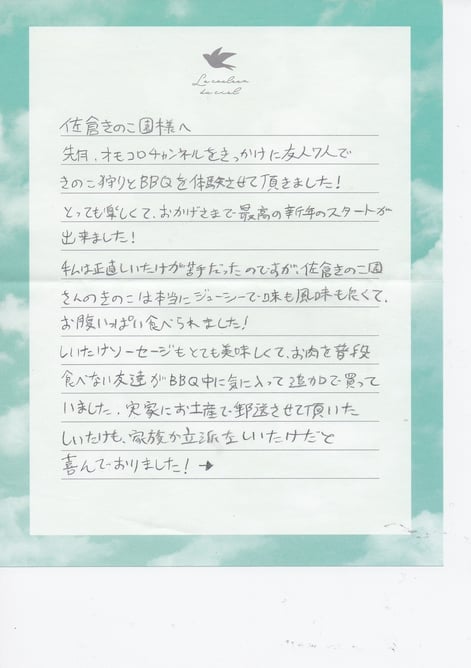 La couleur
du ciel
佐倉きのこ園様へ
先月、オモコロチャンネルをきっかけに友人7人で
きのこ狩りとBBQを体験させて頂きました!
とっても楽しくて、おかげさまで最高の新年のスタートが
出来ました!
私は正直しいたけが苦手だったのですが、佐倉きのこ園
さんのきのこは本当にジューシーで味も風味もたくて、
お腹いっぱい食べられました!
しいたけソーセージもとても美味しくて、お肉を普段
食べない友達がBBQ中に気に入って追加で買って
いました。実家にお土産で郵送させて頂いた
しいたけも、家族が立派なしいたけだと
喜んでおりました!→